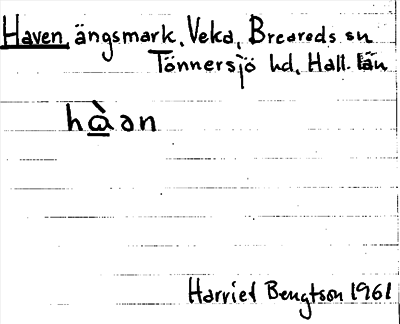 Haven, ängsmark, Veka, Breareds sn
Tönnersjö hd, Hall. län
hàən
Harriet Bengtson 1961